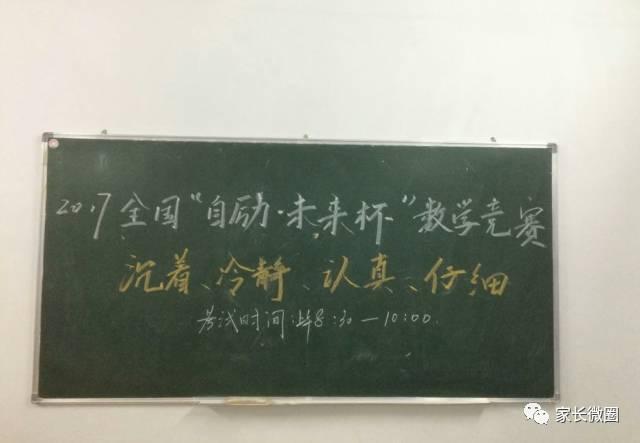 2017全国“自励·未来杯”数学竞赛
沉着、冷静、认真、仔细
考试时间:8:30—10:00.
家长微圈